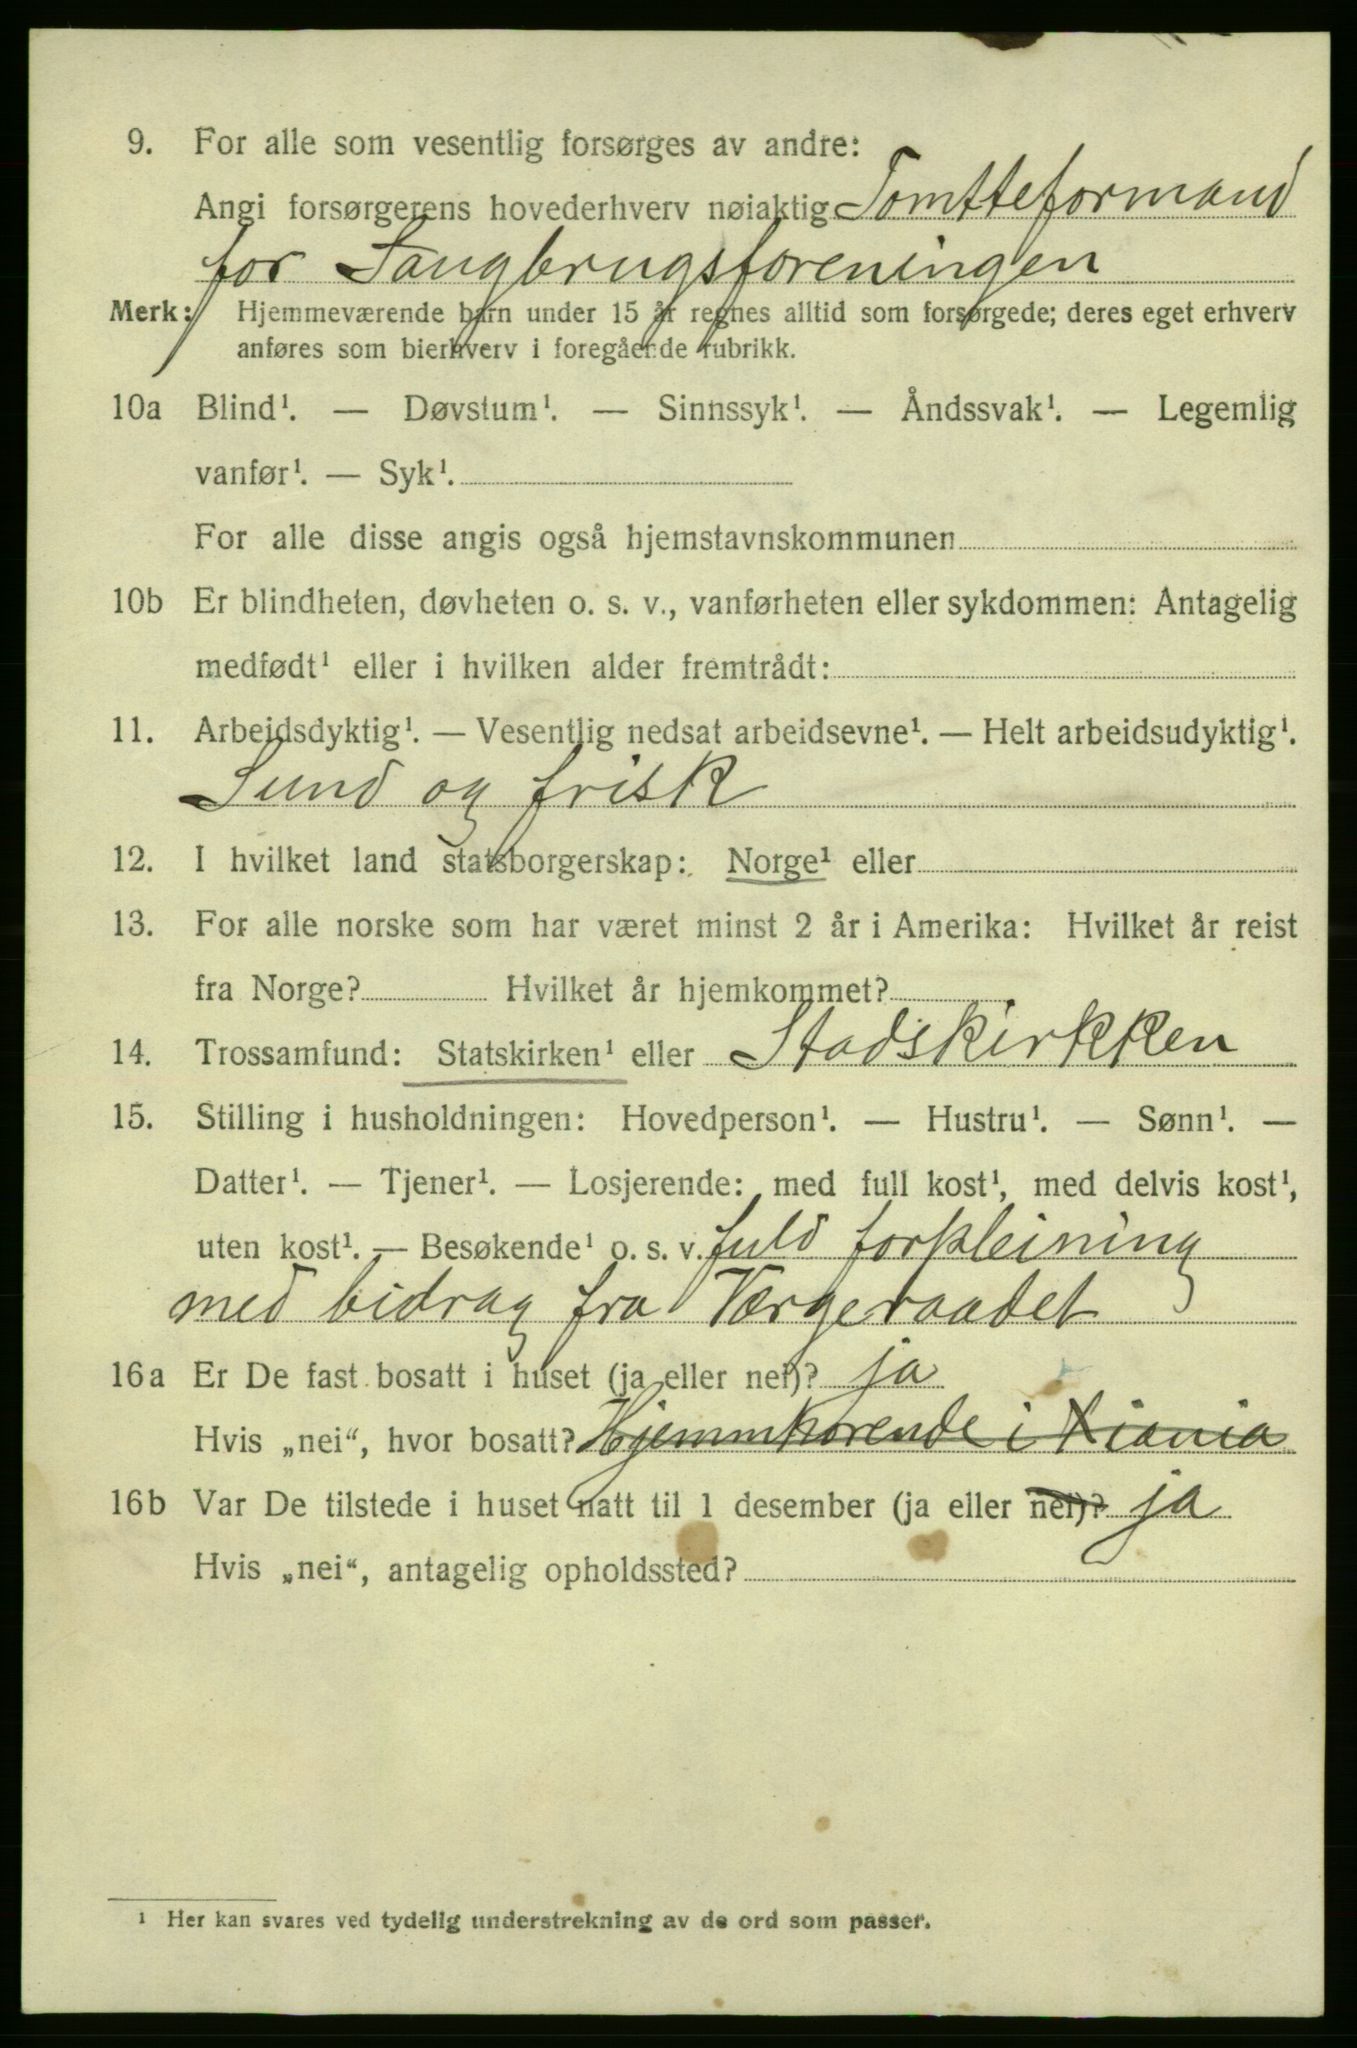 9. For alle som vesentlig forsørges av andre:
Angi forsørgerens hovederhverv nøiaktig Tomtteformand
for Saugbrugsforeningen
Merk: Hjemmeværende barn under 15 år regnes alltid som forsørgede; deres eget erhverv
anføres som bierhverv i foregående rubrikk.
10a Blind¹. — Døvstum¹. — Sinnssyk¹. — Åndssvak¹. — Legemlig
vanfør¹. — Syk¹.
For alle disse angis også hjemstavnskommunen
10b Er blindheten, døvheten o. s. v., vanførheten eller sykdommen: Antagelig
medfødt¹ eller i hvilken alder fremtrådt:
11. Arbeidsdyktig¹. — Vesentlig nedsat arbeidsevne¹. — Helt arbeidsudyktig¹.
Sund og frisk
12. I hvilket land statsborgerskap: Norge¹ eller
13. For alle norske som har været minst 2 år i Amerika: Hvilket år reist
fra Norge? Hvilket år hjemkommet?
14. Trossamfund: Statskirken¹ eller Stadskirkken
15. Stilling i husholdningen: Hovedperson¹. — Hustru¹. — Sønn¹. —
Datter¹. — Tjener¹. — Losjerende: med full kost¹, med delvis kost¹,
uten kost¹. — Besøkende¹ o. s. v. fuld forpleining
med bidrag fra Værgeraadet
16a Er De fast bosatt i huset (ja eller nei)? ja
Hvis „nei“, hvor bosatt? Hjemmhørende i Xiania
16b Var De tilstede i huset natt til 1 desember (ja eller nei)? ja
Hvis „nei“, antagelig opholdssted?
¹ Her kan svares ved tydelig understrekning av de ord som passer.